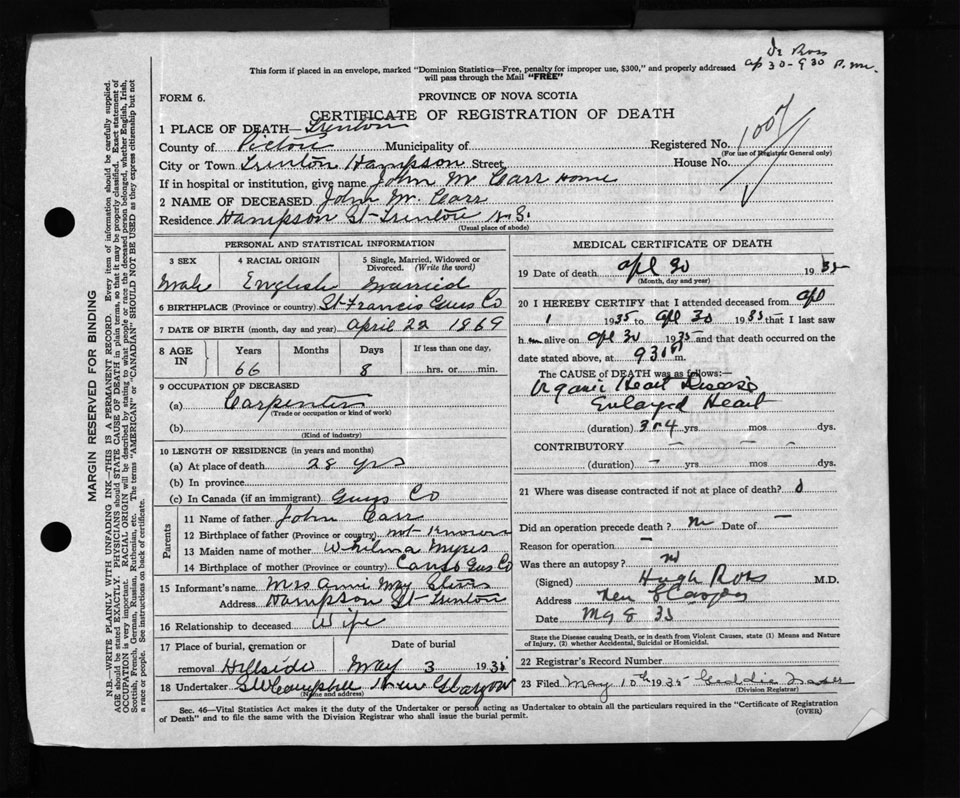 Dr Ross
Ap 30-930 P.M.
This form if placed in an envelope, marked "Dominion Statistics—Free, penalty for improper use, $300," and properly addressed
will pass through the Mail "FREE"
FORM 6.
PROVINCE OF NOVA SCOTIA
CERTIFICATE OF REGISTRATION OF DEATH
1 PLACE OF DEATH— Trenton
County of Pictou Municipality of Registered No. 1007
(For use of Registrar General only)
City or Town Trenton Hampson Street, House No.
If in hospital or institution, give name John M Carr Home
2 NAME OF DECEASED John M. Carr
Residence Hampson St-Trenton N.S.
(Usual place of abode)
MARGIN RESERVED FOR BINDING
N.B.—WRITE PLAINLY WITH UNFADING INK—THIS IS A PERMANENT RECORD. Every item of information should be carefully supplied.
AGE should be stated EXACTLY. PHYSICIANS should STATE CAUSE OF DEATH in plain terms, so that it may be properly classified. Exact statement of
OCCUPATION is very important. RACIAL ORIGIN will be described by stating to what people or race the deceased person belonged, whether English, Irish,
Scottish, French, German, Russian, Ruthenian, etc. The terms "AMERICAN" or "CANADIAN" SHOULD NOT BE USED as they express citizenship but not
a race or people. See instructions on back of certificate.
PERSONAL AND STATISTICAL INFORMATION
3 SEX 4 RACIAL ORIGIN 5 Single, Married, Widowed or
Divorced. (Write the word)
Male English Married
6 BIRTHPLACE (Province or country) St Francis Guys Co
7 DATE OF BIRTH (month, day and year) April 22 1869
8 AGE IN Years Months Days If less than one day,
66 8 hrs. or min.
9 OCCUPATION OF DECEASED
(a) Carpenter
(Trade or occupation or kind of work)
(b)
(Kind of industry)
10 LENGTH OF RESIDENCE (in years and months)
(a) At place of death 28 yrs
(b) In province
(c) In Canada (if an immigrant) Guys Co
Parents
11 Name of father John Carr
12 Birthplace of father (Province or country) not Known
13 Maiden name of mother Whilma Myres
14 Birthplace of mother (Province or country) Canso Gus Co
15 Informant's name Mrs Anni May
Address Hampson St-Trenton
16 Relationship to deceased Wife
17 Place of burial, cremation or Date of burial
removal Hillside May 3 1935
18 Undertaker S W Campbell New Glasgow
(Name and address)
MEDICAL CERTIFICATE OF DEATH
19 Date of death Apl 30 1935
(Month, day and year)
20 I HEREBY CERTIFY that I attended deceased from Apl
1 1935 to Apl 30 1935 that I last saw
him alive on Apl 30 1935 and that death occurred on the
date stated above, at 930 P m.
The CAUSE OF DEATH was as follows:—
Organic Heart Disease
Enlarged Heart
(duration) 3 or 4 yrs mos dys.
CONTRIBUTORY
(duration) — yrs mos dys.
21 Where was disease contracted if not at place of death?
Did an operation precede death? No Date of —
Reason for operation —
Was there an autopsy? No
(Signed) Hugh Ross M.D.
Address New Glasgow
Date My 8 35
State the Disease causing Death, or in death from Violent Causes, state (1) Means and Nature
of Injury, (2) whether Accidental, Suicidal or Homicidal.
22 Registrar's Record Number
23 Filed May 10th 1935 Geddie Fraser
(Division Registrar)
Sec. 46—Vital Statistics Act makes it the duty of the Undertaker or person acting as Undertaker to obtain all the particulars required in the "Certificate of Registration
of Death" and to file the same with the Division Registrar who shall issue the burial permit.
(OVER)